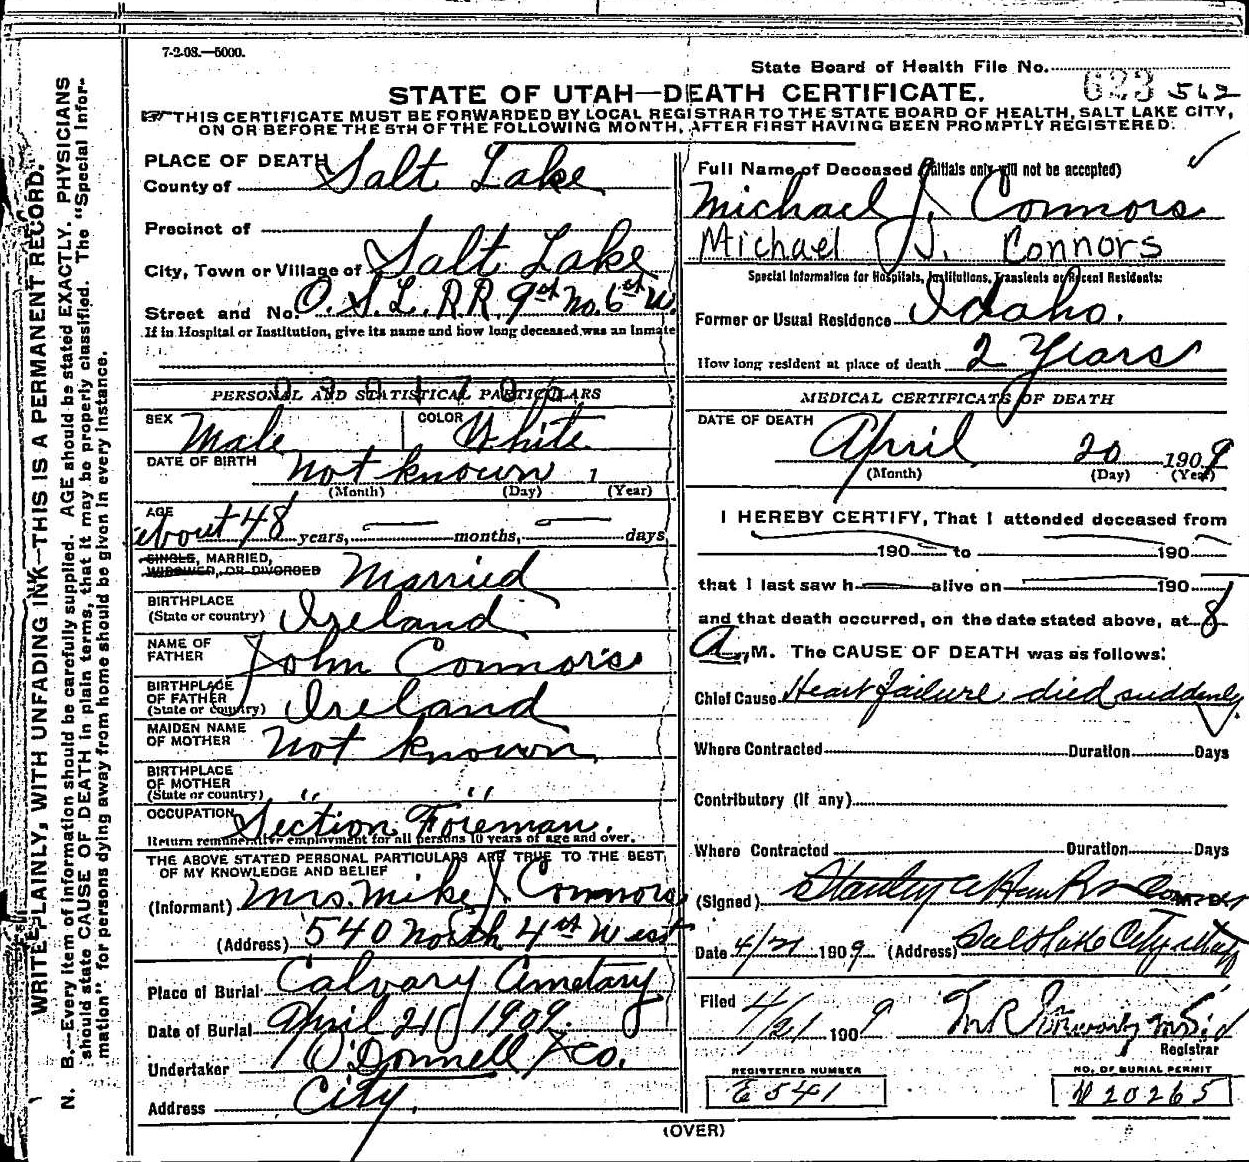 7-2-08.—5000.
State Board of Health File No. 623 562
STATE OF UTAH—DEATH CERTIFICATE.
THIS CERTIFICATE MUST BE FORWARDED BY LOCAL REGISTRAR TO THE STATE BOARD OF HEALTH, SALT LAKE CITY,
ON OR BEFORE THE 5TH OF THE FOLLOWING MONTH, AFTER FIRST HAVING BEEN PROMPTLY REGISTERED.
WRITE PLAINLY, WITH UNFADING INK—THIS IS A PERMANENT RECORD.
N. B.—Every item of information should be carefully supplied. AGE should be stated EXACTLY. PHYSICIANS
should state CAUSE OF DEATH in plain terms, that it may be properly classified. The "Special Infor-
mation" for persons dying away from home should be given in every instance.
PLACE OF DEATH
County of Salt Lake
Precinct of
City, Town or Village of Salt Lake
Street and No. O. S. L. R.R. 9th No. 6th W.
If in Hospital or Institution, give its name and how long deceased was an inmate
PERSONAL AND STATISTICAL PARTICULARS
SEX Male COLOR White
DATE OF BIRTH not known 1
(Month) (Day) (Year)
AGE
about 48 years, — months, — days
SINGLE, MARRIED,
WIDOWED, OR DIVORCED Married
BIRTHPLACE
(State or country) Ireland
NAME OF
FATHER John Connors
BIRTHPLACE
OF FATHER
(State or country) Ireland
MAIDEN NAME
OF MOTHER not known
BIRTHPLACE
OF MOTHER
(State or country) " "
OCCUPATION Section Foreman.
Return remunerative employment for all persons 10 years of age and over.
THE ABOVE STATED PERSONAL PARTICULARS ARE TRUE TO THE BEST
OF MY KNOWLEDGE AND BELIEF
(Informant) Mrs. Mike J. Connors
(Address) 540 North 4th West
Place of Burial Calvary Cmetary
Date of Burial April 21 1909.
Undertaker O'Donnell & Co.
Address City.
Full Name of Deceased (Initials only will not be accepted)
Michael J. Connors
Michael J. Connors
Special Information for Hospitals, Institutions, Transients or Recent Residents:
Former or Usual Residence Idaho.
How long resident at place of death 2 Years
MEDICAL CERTIFICATE OF DEATH
DATE OF DEATH
April 20 1909
(Month) (Day) (Year)
I HEREBY CERTIFY, That I attended deceased from
190 to 190
that I last saw h alive on 190
and that death occurred, on the date stated above, at 8
A. M. The CAUSE OF DEATH was as follows:
Chief Cause Heart failure died suddenly
Where Contracted Duration Days
Contributory (if any)
Where Contracted Duration Days
(Signed) Stanley
Date 4/21 1909 (Address) Salt Lake City Utah
Filed 4/21 1909 M R
Registrar
REGISTERED NUMBER
E 541
NO. OF BURIAL PERMIT
20265
(OVER)